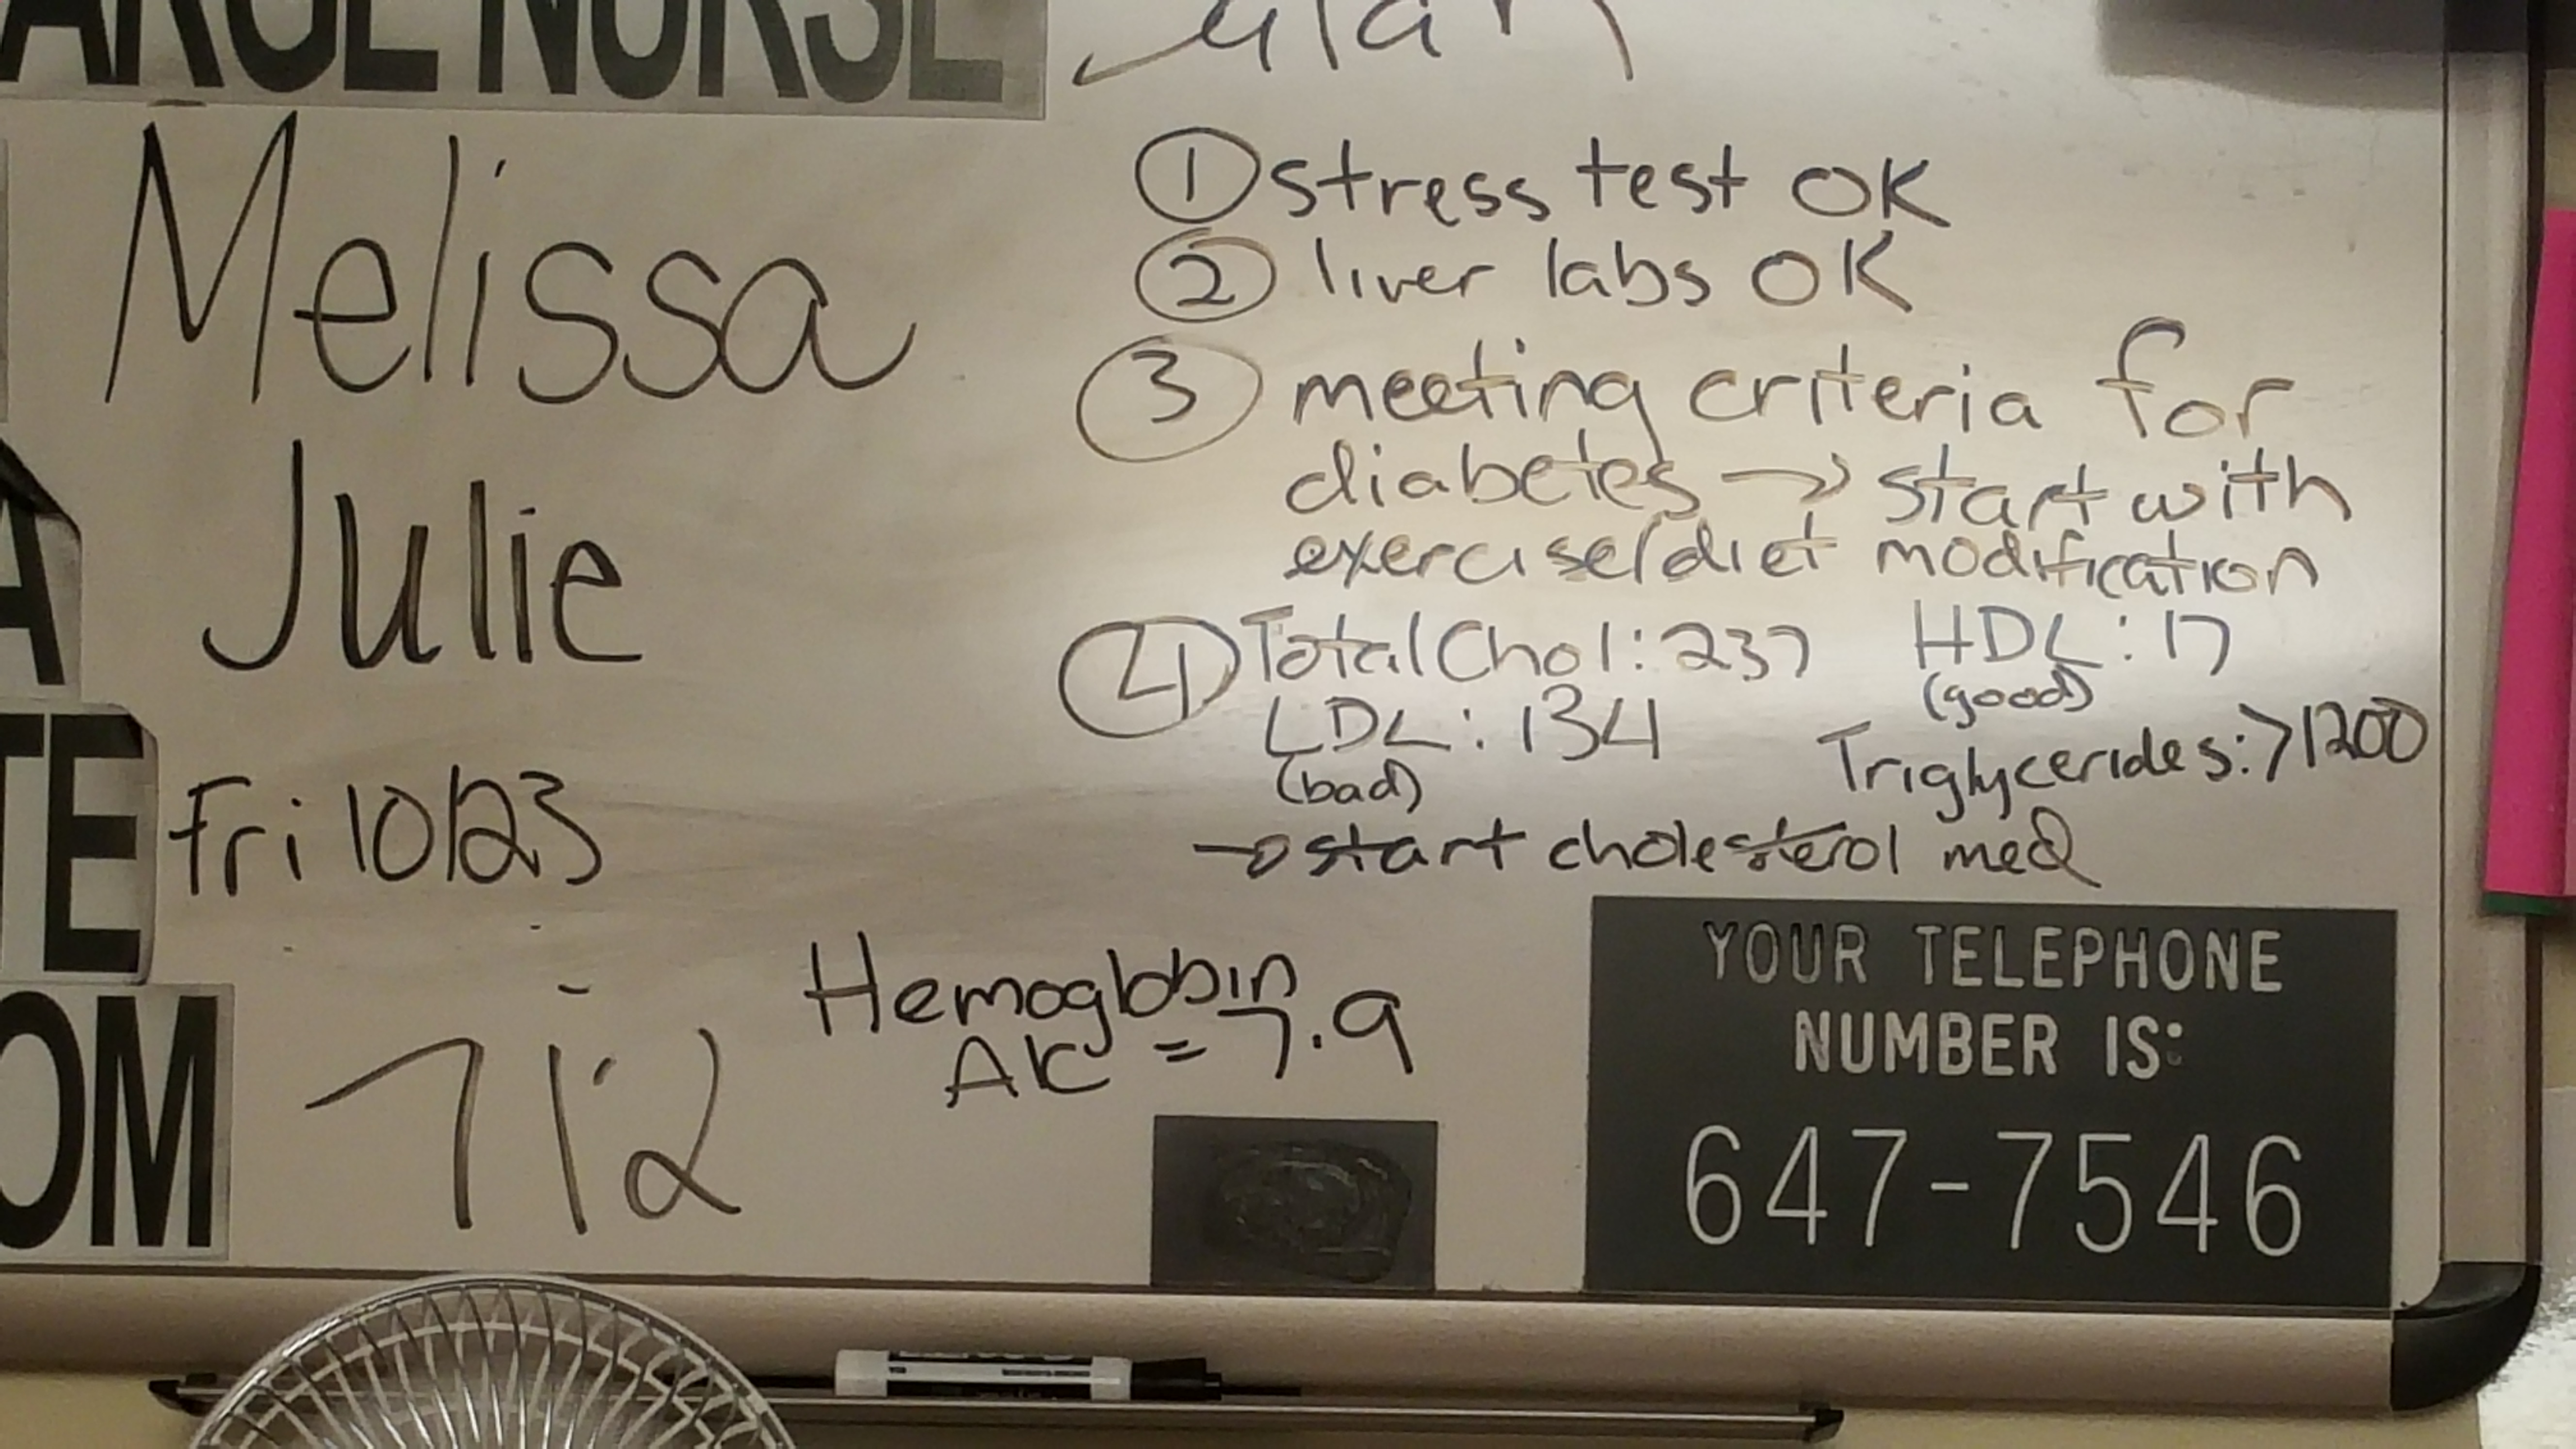 ARGE NURSE
Melissa
① stress test OK
② liver labs OK
③ meeting criteria for
diabetes → start with
exercise/diet modification
④ Total Chol: 237 HDL: 17
(good)
LDL: 134 Triglycerides: >1200
(bad)
→ start cholesterol med
A
Julie
TE
Fri 10/23
OM
712
Hemoglobin
A1C = 7.9
YOUR TELEPHONE
NUMBER IS:
647-7546